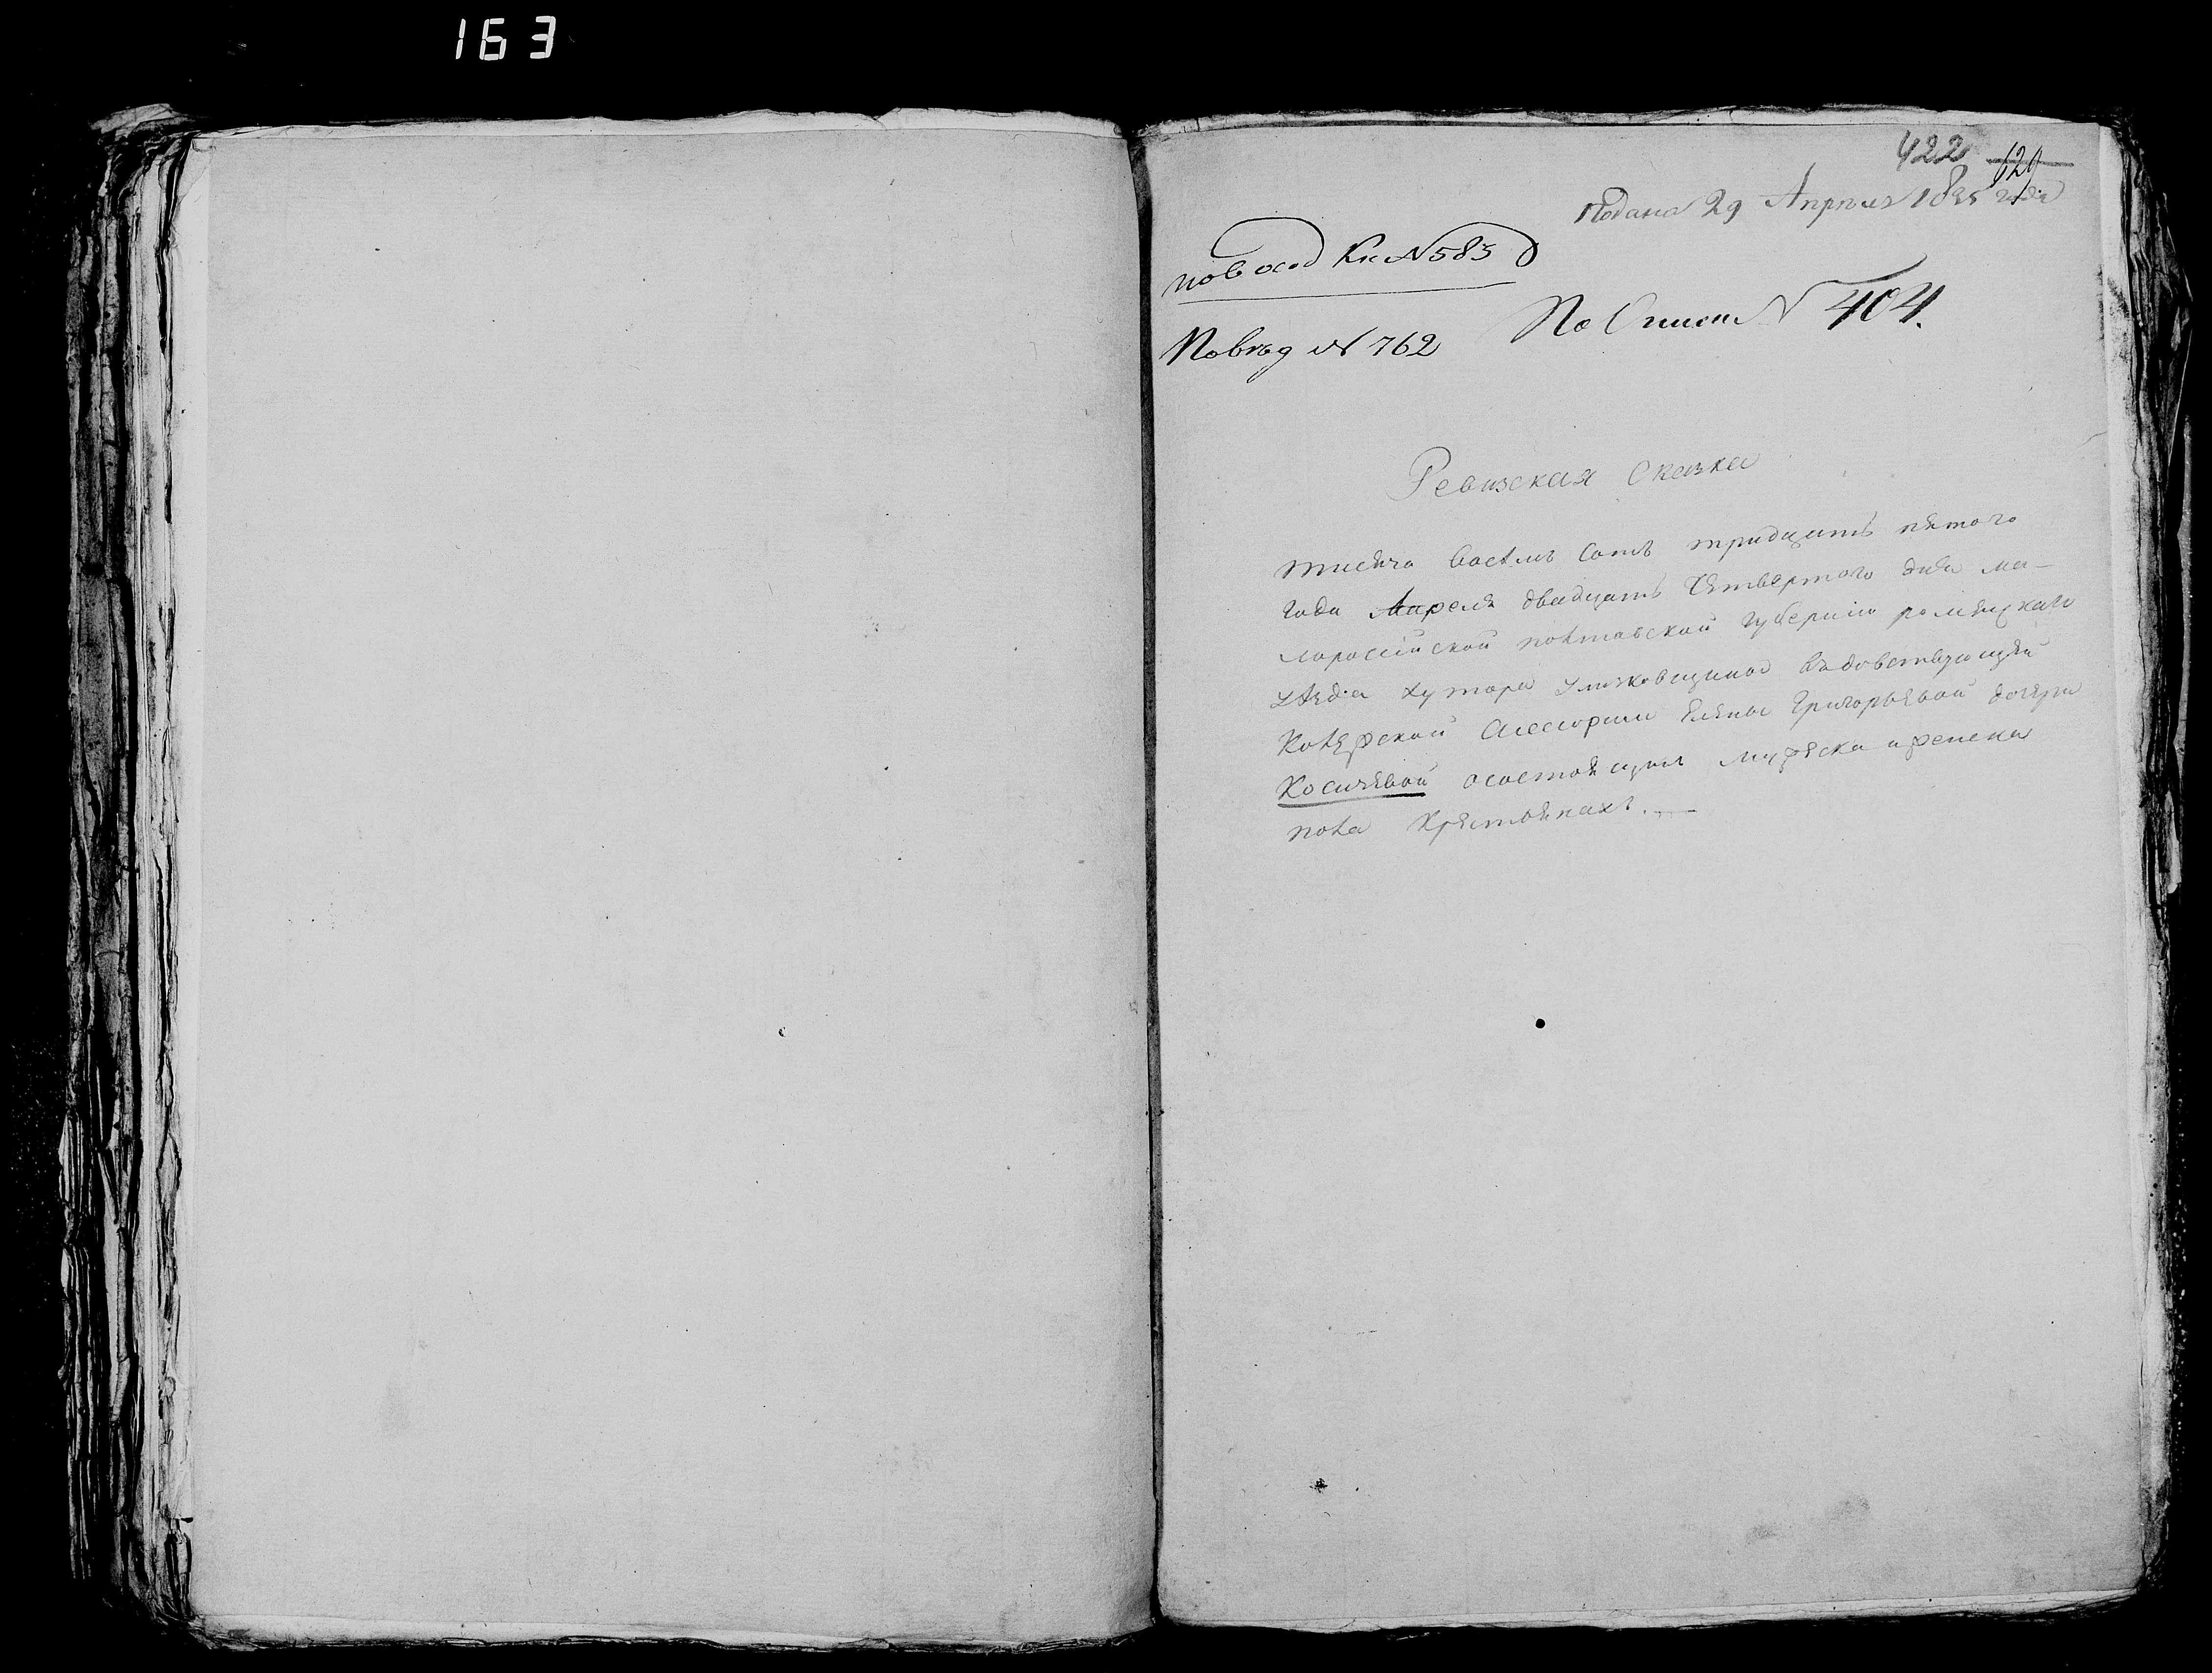 163
422 629
Подана 29 Апреля 1835 года
по вход Кн N 585
По Описи N 404.
По вѣд N 762
Ревизская Сказка
тисяча восемъ сотъ тридцать пятого
года Апреля двадцать Четвертого дня ма-
лоросийской полтавской губернии роменскаго
уезда хутора вдовствующей
Колежской Асессорши Елены Григорьевой дочери
Косичевой осостоящихъ мужеска и женска
пола Крестянахъ.—